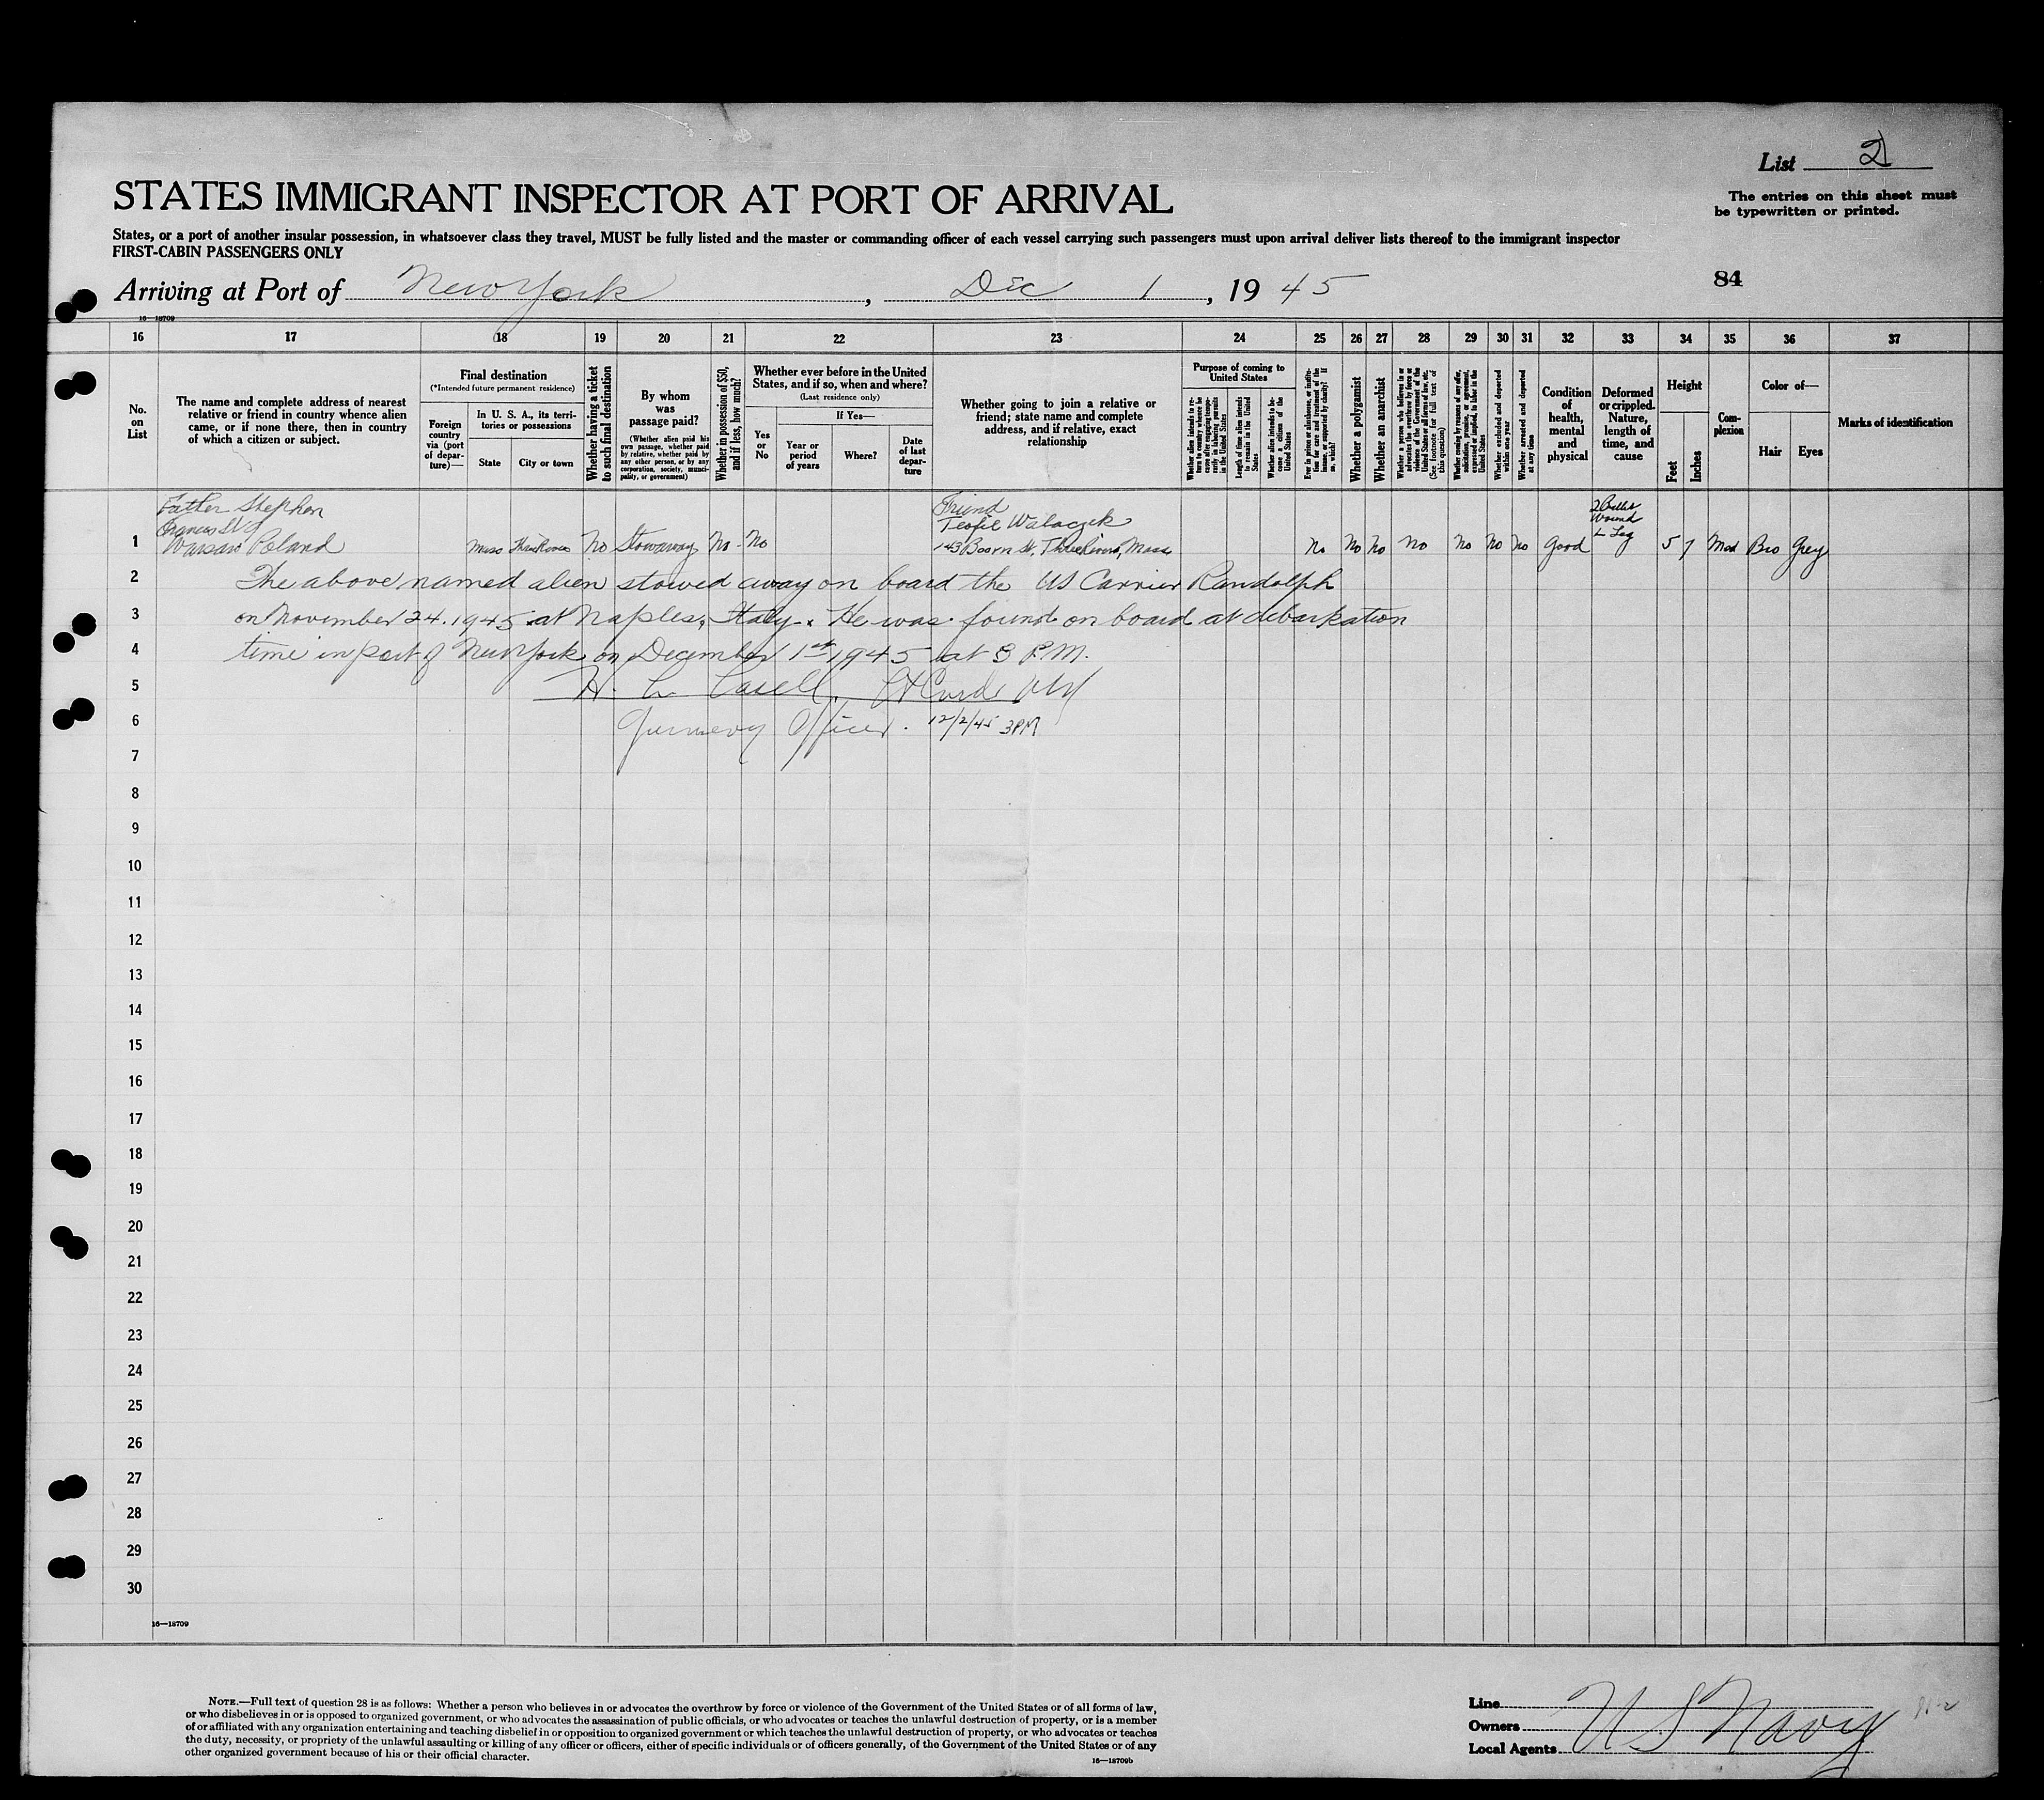 List 2
The entries on this sheet must
be typewritten or printed.
STATES IMMIGRANT INSPECTOR AT PORT OF ARRIVAL
States, or a port of another insular possession, in whatsoever class they travel, MUST be fully listed and the master or commanding officer of each vessel carrying such passengers must upon arrival deliver lists thereof to the immigrant inspector
FIRST-CABIN PASSENGERS ONLY
84
Arriving at Port of New York, Dec 1, 1945
16—18709
16 17 18 19 20 21 22 23 24 25 26 27 28 29 30 31 32 33 34 35 36 37
No.
on
List
The name and complete address of nearest
relative or friend in country whence alien
came, or if none there, then in country
of which a citizen or subject.
Final destination
(*Intended future permanent residence)
Foreign
country
via (port
of depar-
ture)—
In U. S. A., its terri-
tories or possessions
State City or town
Whether having a ticket
to such final destination
By whom
was
passage paid?
(Whether alien paid his
own passage, whether paid
by relative, whether paid by
any other person, or by any
corporation, society, munici-
pality, or government)
Whether in possession of $50,
and if less, how much?
Whether ever before in the United
States, and if so, when and where?
(Last residence only)
Yes
or
No
If Yes—
Year or
period
of years
Where?
Date
of last
depar-
ture
Whether going to join a relative or
friend; state name and complete
address, and if relative, exact
relationship
Purpose of coming to
United States
Whether alien intends to re-
turn to country whence he
came after engaging tempo-
rarily in laboring pursuits
in the United States
Length of time alien intends
to remain in the United
States
Whether alien intends to be-
come a citizen of the
United States
Ever in prison or almshouse, or institu-
tion for care and treatment of the
insane, or supported by charity? If
so, which?
Whether a polygamist
Whether an anarchist
Whether a person who believes in or
advocates the overthrow by force or
violence of the Government of the
United States or all forms of law, etc.
(See footnote for full text of
this question)
Whether coming by reasons of any offer,
solicitation, promise, or agreement,
expressed or implied, to labor in the
United States
Whether excluded and deported
within one year
Whether arrested and deported
at any time
Condition
of
health,
mental
and
physical
Deformed
or crippled.
Nature,
length of
time, and
cause
Height
Feet
Inches
Com-
plexion
Color of—
Hair Eyes
Marks of identification
Father Stephen
Warsaw Poland
1 Mass Three Rivers No Stowaway No No
Friend
Teofil Walaczek
143 St, Three Rivers, Mass
No No No No No No No Good
2 Bullet
Wound
L Leg
5 7 Med Bro Grey
2 The above named alien stowed away on board the US Carrier Randolph
3 on November 24. 1945 at Naples, Italy. He was found on board at debarkation
4 time in port of New York on December 1st 1945 at 3 P.M.
5 H. L.
6 Officer. 12/2/45 3PM
7
8
9
10
11
12
13
14
15
16
17
18
19
20
21
22
23
24
25
26
27
28
29
30
16—18709
NOTE.—Full text of question 28 is as follows: Whether a person who believes in or advocates the overthrow by force or violence of the Government of the United States or of all forms of law,
or who disbelieves in or is opposed to organized government, or who advocates the assassination of public officials, or who advocates or teaches the unlawful destruction of property, or is a member
of or affiliated with any organization entertaining and teaching disbelief in or opposition to organized government or which teaches the unlawful destruction of property, or who advocates or teaches
the duty, necessity, or propriety of the unlawful assaulting or killing of any officer or officers, either of specific individuals or of officers generally, of the Government of the United States or of any
other organized government because of his or their official character.
16—18709b
Line
Owners US Navy
Local Agents